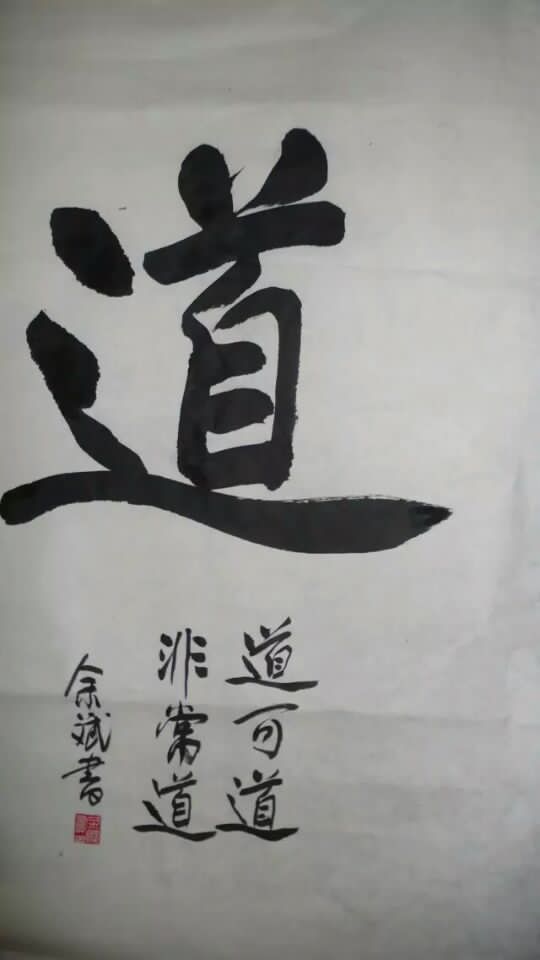 道
道可道
非常道
余斌書